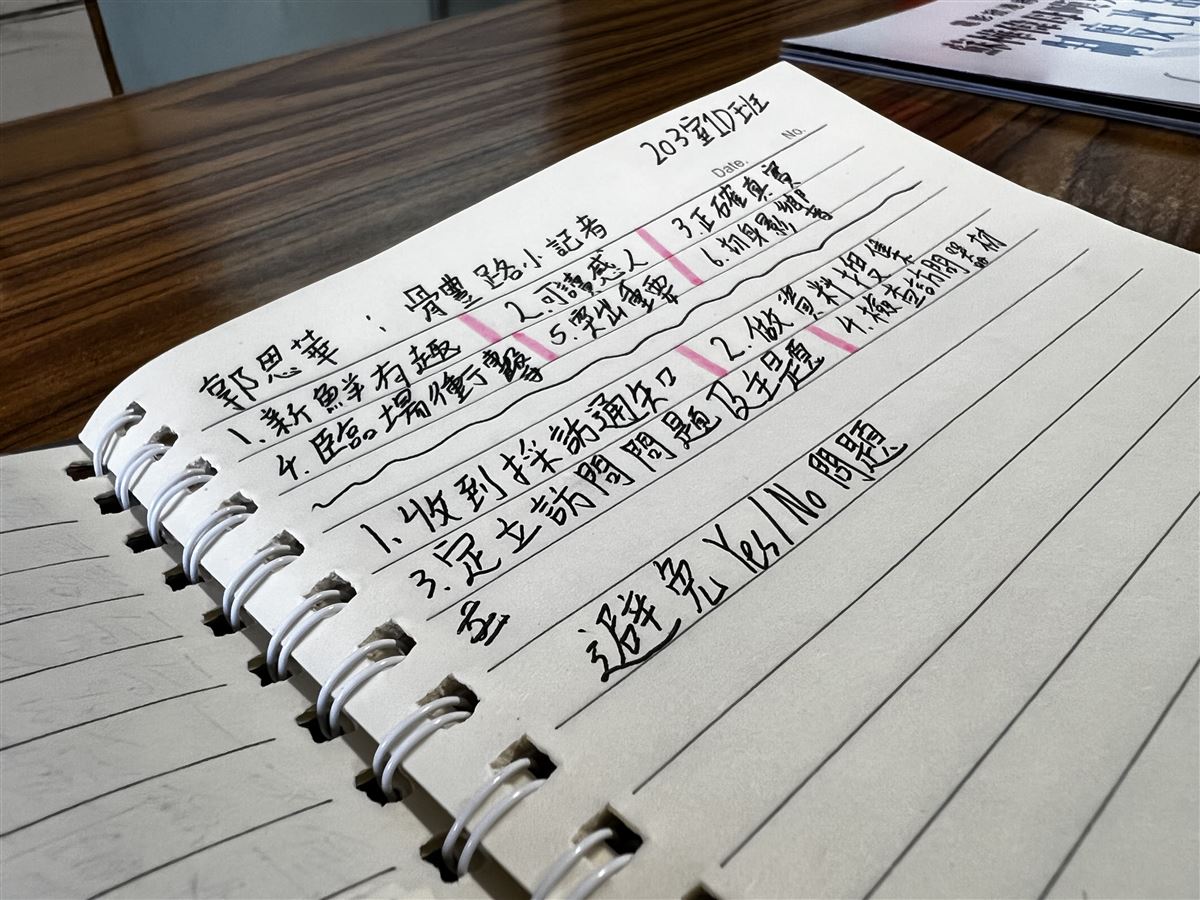 203室1D班
No.
Date.
郭思華：骨豐路小記者
1.新鮮有趣 2.可讀感人 3.正確真實
4.臨場衝擊 5.突出重要 6.切身影響
1.收到採訪通知 2.做資料搜集
3.定立訪問問題及主題 4.檢查訪問器材
避免Yes/No問題